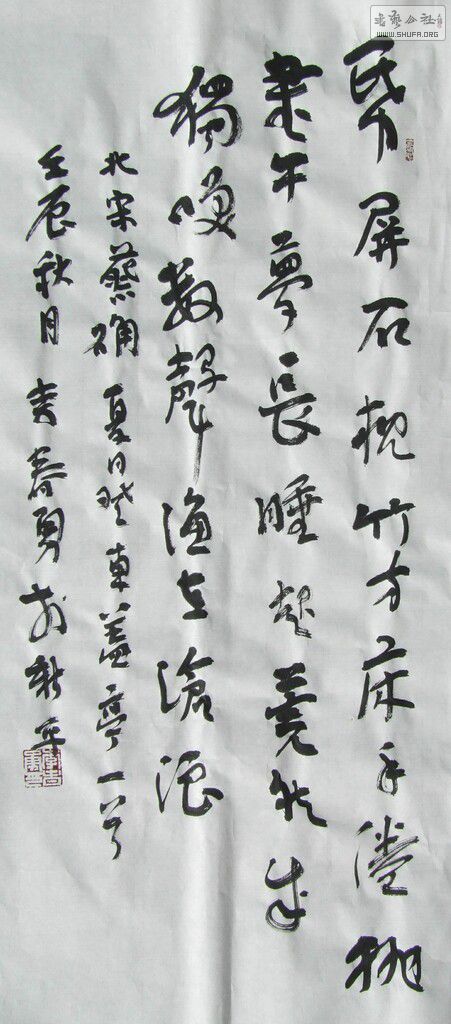 書藝公社
WWW.SHUFA.ORG
帋屏石枕竹方床手倦抛
書午夢長睡起莞然成
獨咲數聲漁在滄浪
北宋蔡確夏日登車蓋亭一首
壬辰秋月 春勇